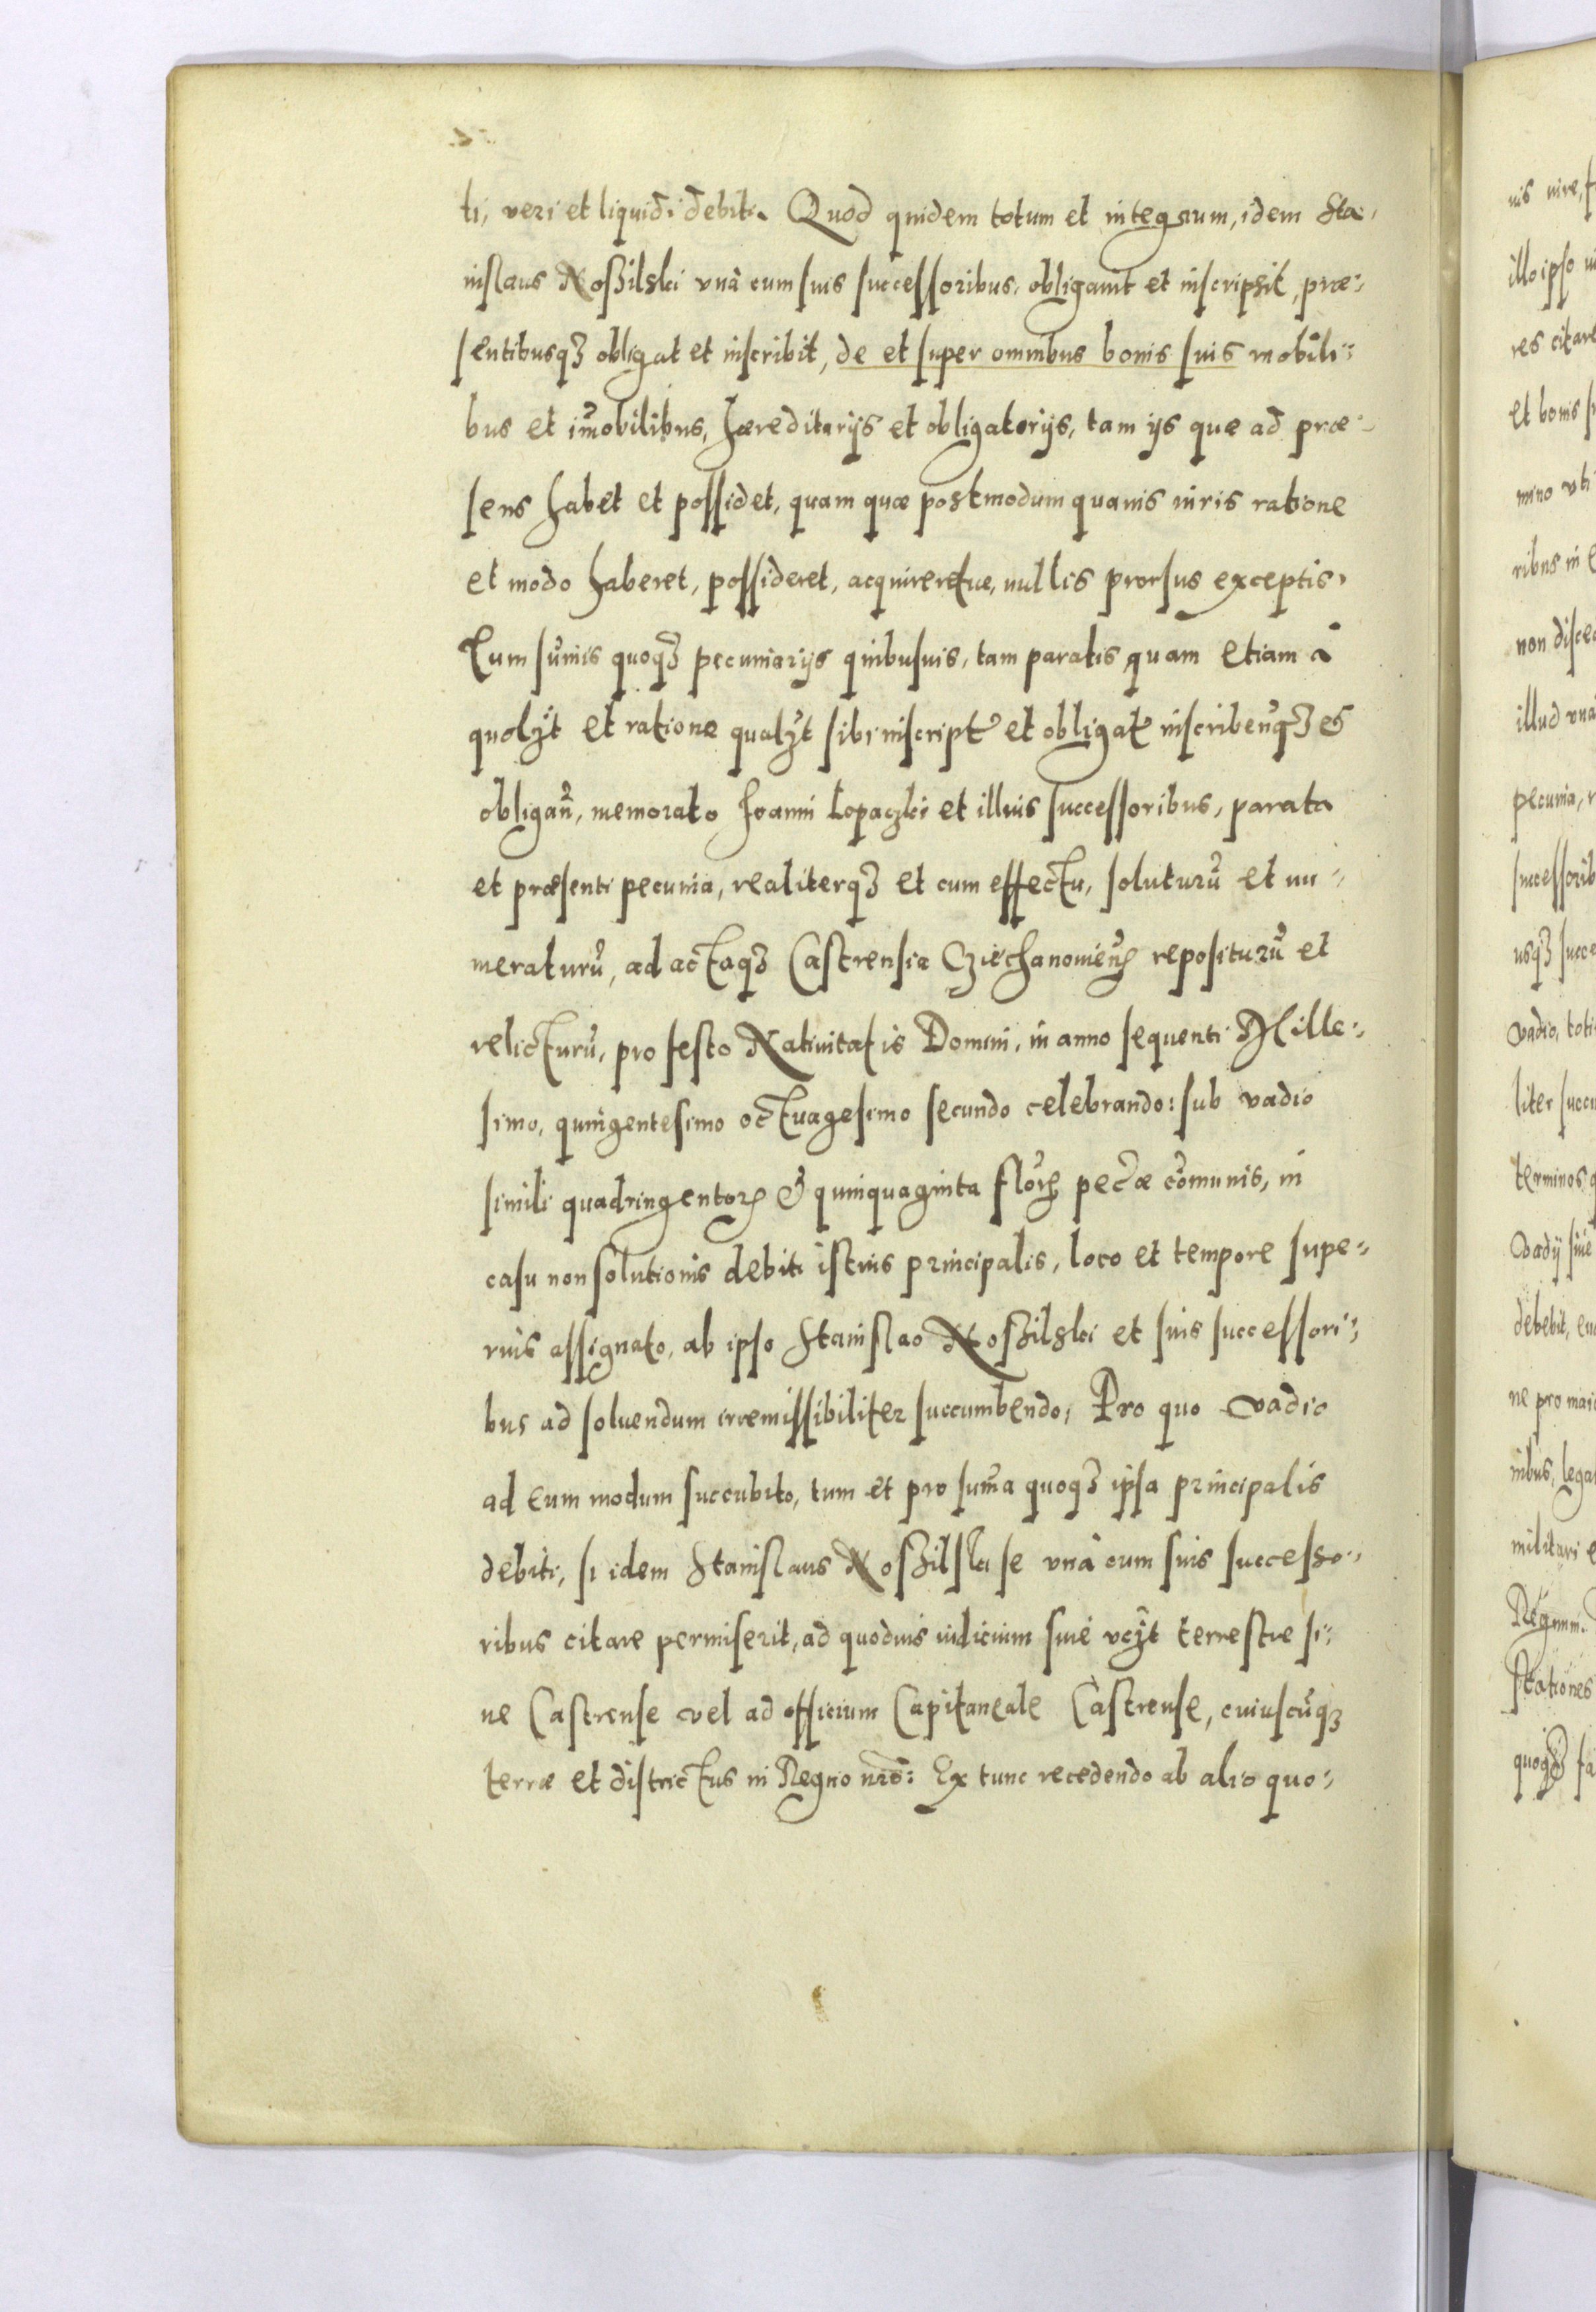 ti, veri et liquidi debiti. Quod quidem totum et integrum, idem Sta-
nislaus Noßilski vnà cum suis successoribus, obligauit et inscripsit, præ-
sentibusqꝫ obligat et inscribit, de et super omnibus bonis suis mobili-
bus et im̃obilibus, hæreditarijs et obligatorijs, tam ijs quæ ad præ-
sens habet et possidet, quam quæ postmodum quauis iuris ratione
et modo haberet, possideret, acquireretue, nullis prorsus exceptis.
Cum sum̃is quoqꝫ pecuniarijs quibusuis, tam paratis quam etiam à
quolꝫt et ratione qualꝫt sibi inscript̃ et obligat̃ inscribeñqꝫ et
obligañ, memorato Joanni Lopaczki et illius successoribus, parata
et præsenti pecunia, realiterqꝫ et cum effectu, soluturũ et nu-
meraturũ, ad actaqꝫ Castrensia Cziechanouieñ repositurũ et
relicturũ, pro festo Natiuitatis Domini, in anno sequenti Mille-
simo, quingentesimo octuagesimo secundo celebrando: sub vadio
simili quadringentoꝝ & quinquaginta floꝝ pec̃æ com̃unis, in
casu non solutionis debiti istius principalis, loco et tempore supe-
rius assignato, ab ipso Stanislao Noßilski et suis successori-
bus ad soluendum irremissibiliter succumbendo, Pro quo vadio
ad eum modum succubito, tum et pro sum̃a quoqꝫ ipsa principalis
debiti, si idem Stanislaus Noßilski se vnà cum suis successo-
ribus citare permiserit, ad quoduis iudicium siue vcꝫt terrestre si-
ue Castrense vel ad officium Capitaneale Castrense, cuiuscũqꝫ
terræ et districtus in Regno nr̃o: Ex tunc recedendo ab alio quo-
uis iure, f
illo ipso
res citare
et bonis
mino vti
ribus in
non disce
illud vna
pecunia,
successorib
usqꝫ succe
vadio, toti
liter succu
terminos
vadij siue
debebit,
ne pro
nibus, lega
militari
Regnum.
stationes
quoqꝫ fa